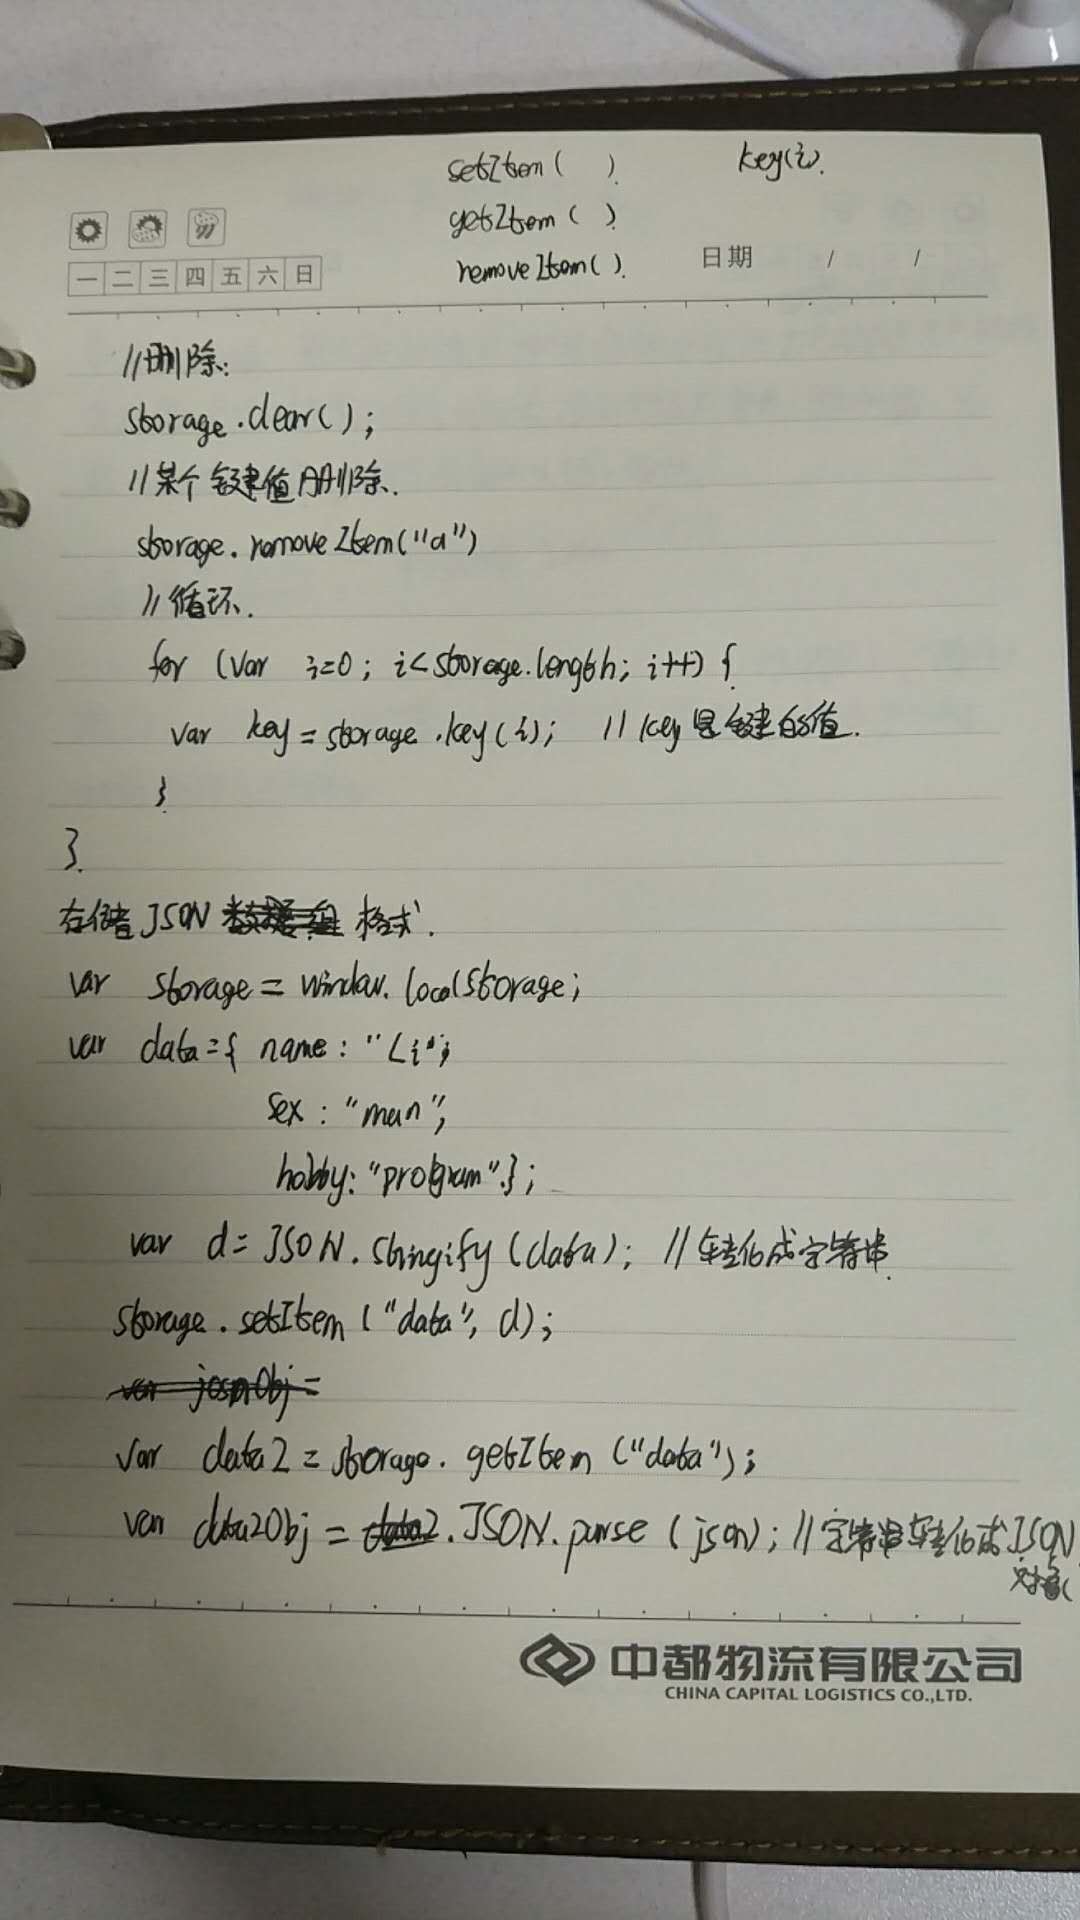 setItem( ). key(i).
getItem( ).
removeItem( ).
日期 / /
一 二 三 四 五 六 日
//删除:
storage.clear();
//某个键值删除.
storage.removeItem("a")
//循环.
for (var i=0; i<storage.length; i++) {
var key = storage.key(i); //key是键的值.
}
}.
存储 JSON 数据组 格式.
var storage = window.localStorage;
var data={ name: "Li",
sex: "man",
hobby: "program".};
var d= JSON.stringify(data); //转化成字符串.
storage.setItem("data", d);
var josnObj =
var data2 = storage.getItem("data");
var data2Obj = data2.JSON.parse(json); //字符串转化成JSON
对象(
中都物流有限公司
CHINA CAPITAL LOGISTICS CO.,LTD.